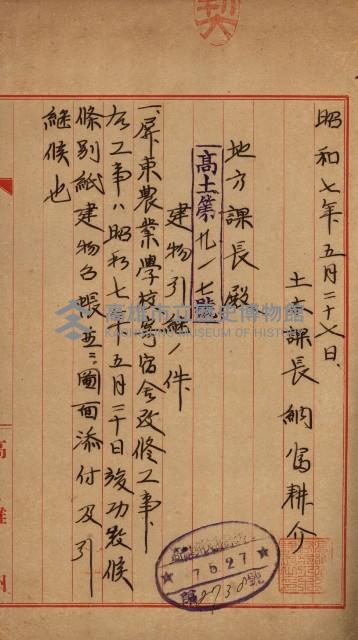 契
昭和七年五月二十七日
土木課長 網富耕介
地方課長殿
高土第九一七號
建物引継ノ件
一、屏東農業學校寄宿舎改修工事
右工事ハ昭和七年五月二十日竣功致候
條別紙建物台帳並ニ圖面添付及引
継候也
高雄市立歷史博物館
KAOHSIUNG MUSEUM OF HISTORY
7.5.27
高雄州